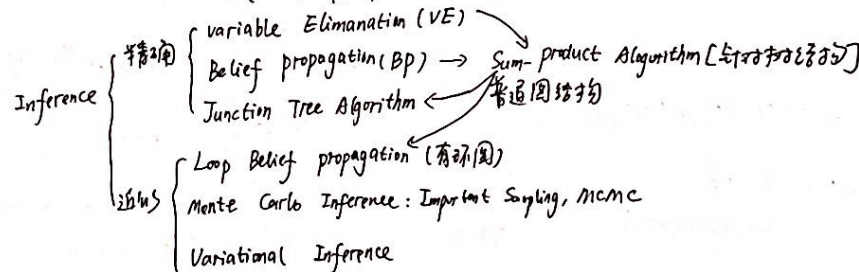 variable Elimanation (VE)
精确
Belief propagation (BP) → Sum-product Algorithm [针对树结构]
Inference
Junction Tree Algorithm
普通图结构
Loop Belief propagation (有环图)
近似
Monte Carlo Inference: Important Sampling, MCMC
Variational Inference